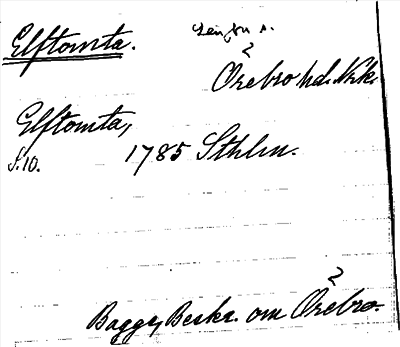 Elftomta.
2
Örebro hd. Nrk.
Elftomta,
S. 10. 1785 Sthlm.
2
Bagge, Beskr. om Örebro.